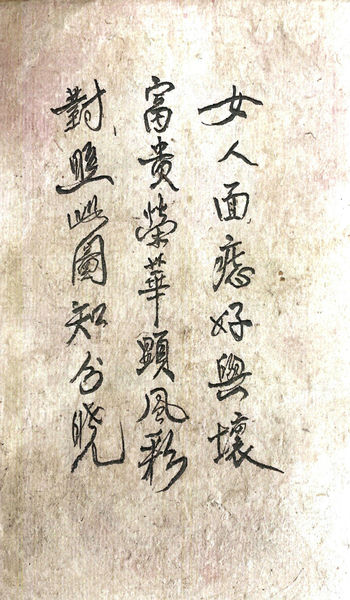 女人面痣好與壞
富貴榮華顕風彩
對照此圖知分曉